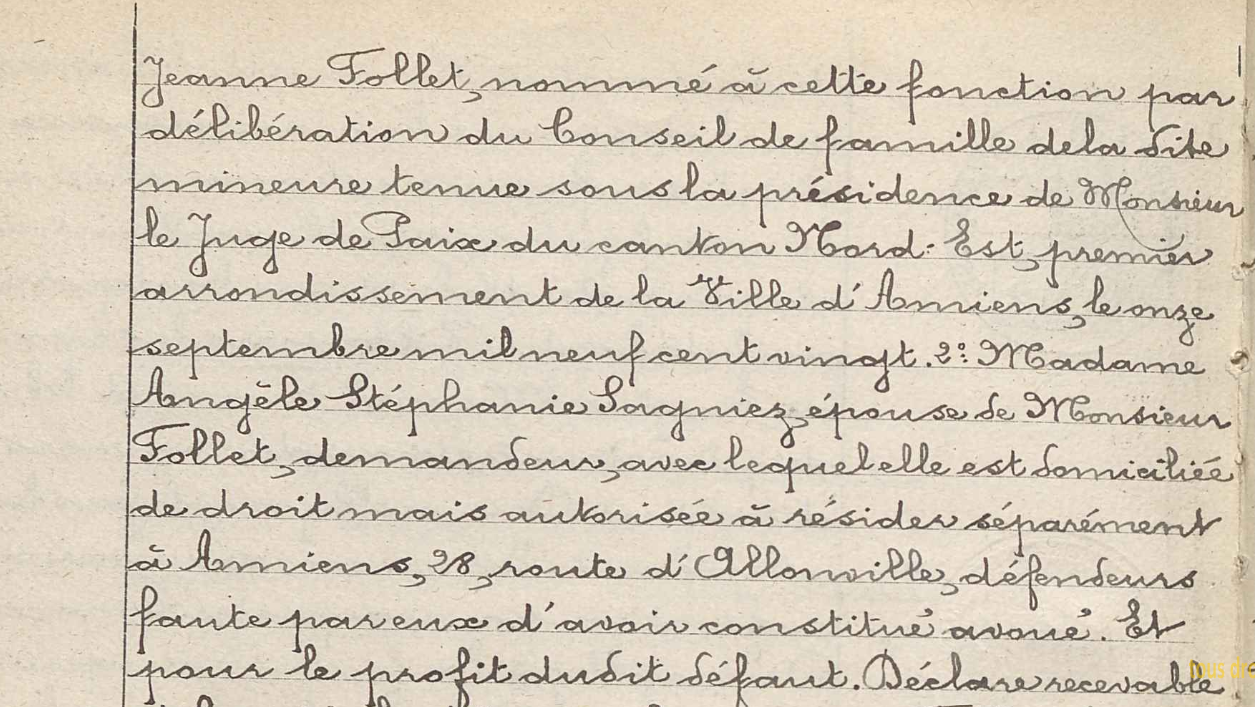 Jeanne Follet, nommé à cette fonction par
délibération du Conseil de famille de la dite
mineure tenue sous la présidence de Monsieur
le Juge de Paix du canton Nord-Est, premier
arrondissement de la Ville d'Amiens, le onze
septembre mil neuf cent vingt. 2° Madame
Angèle Stéphanie Sagniez, épouse de Monsieur
Follet, demandeur, avec lequel elle est domiciliée
de droit mais autorisée à résider séparément
à Amiens, 28, route d'Allonville, défendeurs
faute par eux d'avoir constitué avoué. Et
pour le profit dudit défaut. Déclare recevable